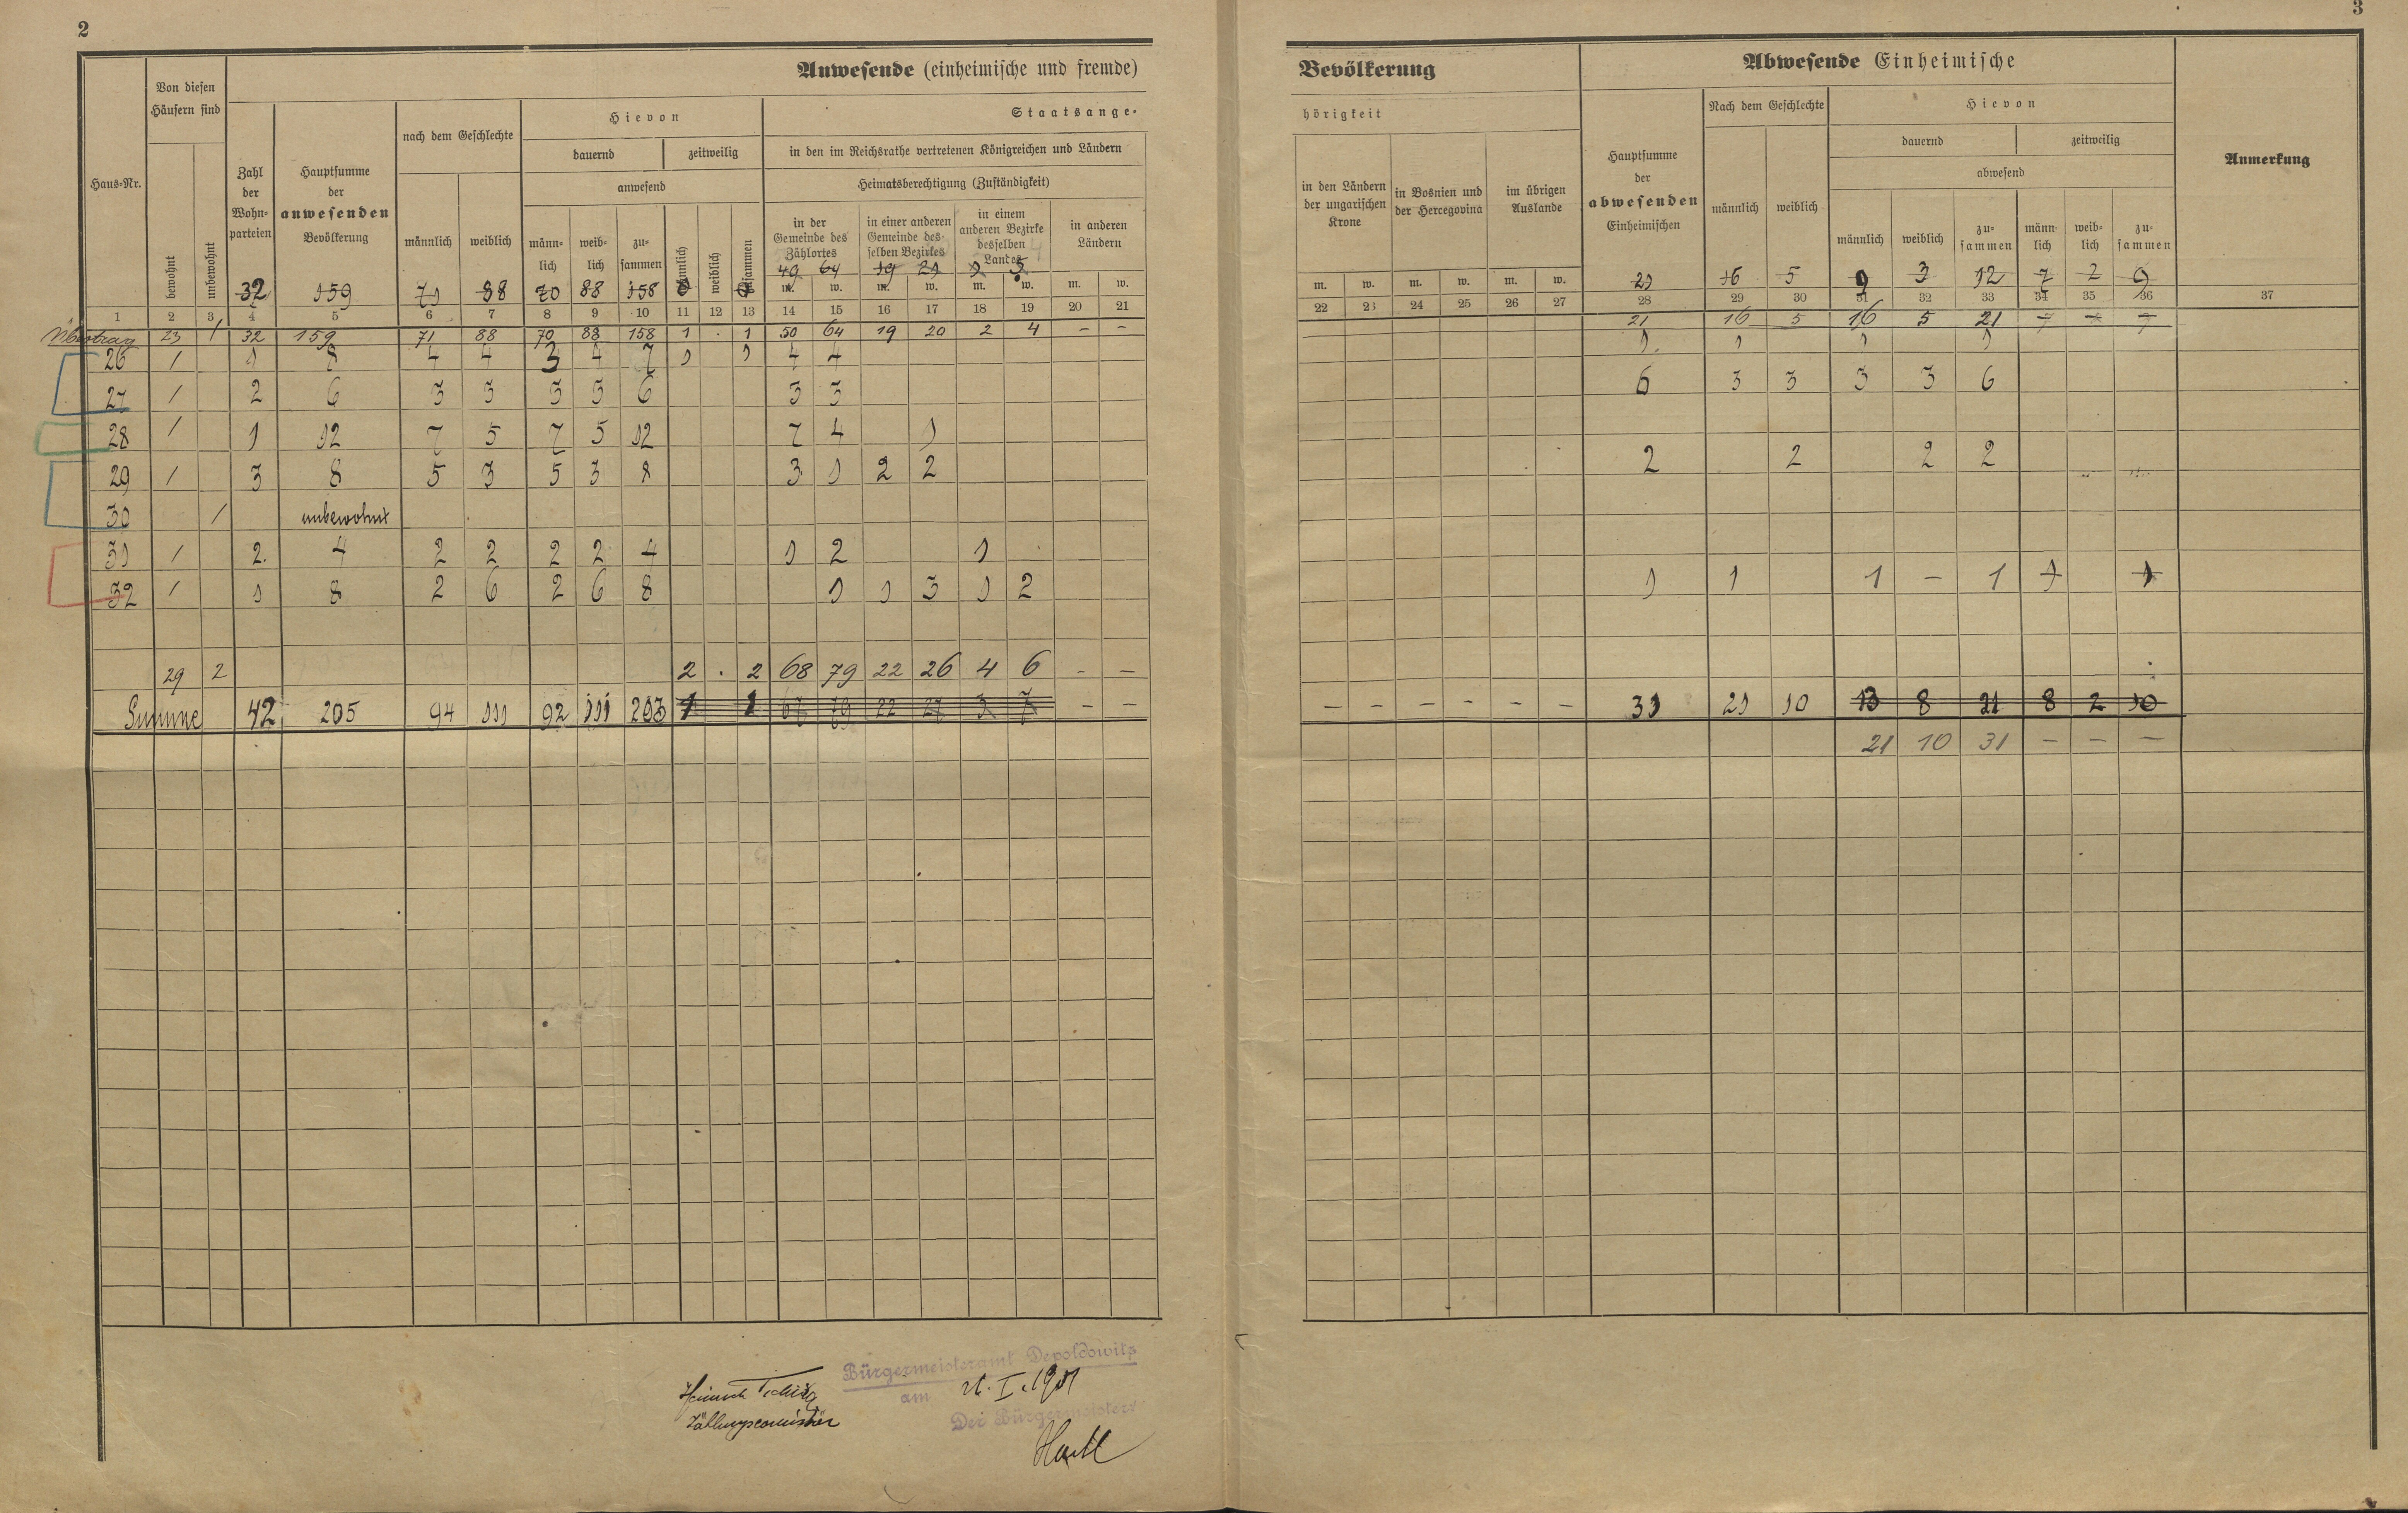 2
Anwesende (einheimische und fremde)
Haus-Nr.
Von diesen Häusern sind
bewohnt
unbewohnt
Zahl der Wohnparteien
Hauptsumme der anwesenden Bevölkerung
nach dem Geschlechte
männlich
weiblich
Hievon
dauernd
zeitweilig
anwesend
männ-lich
weib-lich
zu-sammen
männlich
weiblich
zusammen
Staatsange-
in den im Reichsrathe vertretenen Königreichen und Ländern
Heimatsberechtigung (Zuständigkeit)
in der Gemeinde des Zählortes
in einer anderen Gemeinde desselben Bezirkes
in einem anderen Bezirke desselben Landes
in anderen Ländern
32 159 71 88 70 88 158 49 64 19 21
m. w. m. w. m. w. m. w.
1 2 3 4 5 6 7 8 9 10 11 12 13 14 15 16 17 18 19 20 21
Übertrag 23 / 32 159 71 88 70 88 158 1 . 1 50 64 19 20 2 4 – –
26 / 1 8 4 4 3 4 7 1 1 4 4
27 / 2 6 3 3 3 3 6 3 3
28 / 1 12 7 5 7 5 12 7 4 1
29 / 3 8 5 3 5 3 8 3 1 2 2
30 / unbewohnt
31 / 2. 4 2 2 2 2 4 1 2 1
32 / 1 8 2 6 2 6 8 1 1 3 1 2
29 2 2 . 2 68 79 22 26 4 6 – –
Summe 42 205 94 111 92 111 203 1 1 67 79 22 27 3 7 – –
Heinrich
Zählungscommissär
Bürgermeisteramt Depoldowitz
am 21. I. 1901
Der Bürgermeister:
3
Bevölkerung
hörigkeit
in den Ländern der ungarischen Krone
in Bosnien und der Hercegovina
im übrigen Auslande
Abwesende Einheimische
Hauptsumme der abwesenden Einheimischen
Nach dem Geschlechte
männlich
weiblich
Hievon
dauernd
zeitweilig
abwesend
männlich
weiblich
zu-sammen
männ-lich
weib-lich
zu-sammen
Anmerkung
m. w. m. w. m. w.
21 16 5 9 3 12 7 2 9
22 23 24 25 26 27 28 29 30 31 32 33 34 35 36 37
21 16 5 16 5 21
1 1 1 1
6 3 3 3 3 6
2 2 2 2
1 1 1 – 1 1 1
– – – – – – 31 21 10 13 8 21 8 2 10
21 10 31 – – –